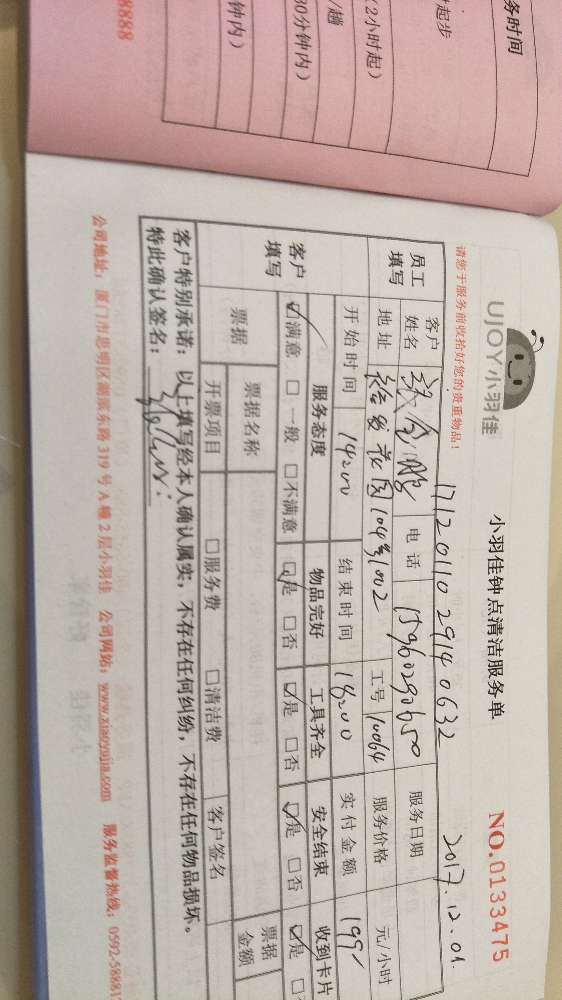 务时间
起步
(2小时起)
/趟
30分钟内)
钟内)
8888
UJOY小羽佳
小羽佳钟点清洁服务单
NO.0133475
请您于服务前收拾好您的贵重物品!
17120110 29140632
2017.12.01
员工填写
客户姓名
电话
15960290650
服务日期
地址
裕发花园104号1002
工号
10064
服务价格
元/小时
开始时间
14:00
结束时间
18:00
实付金额
199
客户填写
服务态度
物品完好
工具齐全
安全结束
收到卡片
☑满意 □一般 □不满意
☑是 □否
☑是 □否
☑是 □否
☑是
票据
票据名称
票据金额
开票项目
□服务费
□清洁费
客户签名
客户特别承诺:以上填写经本人确认属实,不存在任何纠纷,不存在任何物品损坏。
特此确认签名:
公司地址:厦门市思明区湖滨东路319号A幢2层小羽佳 公司网站:www.xiaoyujia.com 服务监督热线:0592-588817